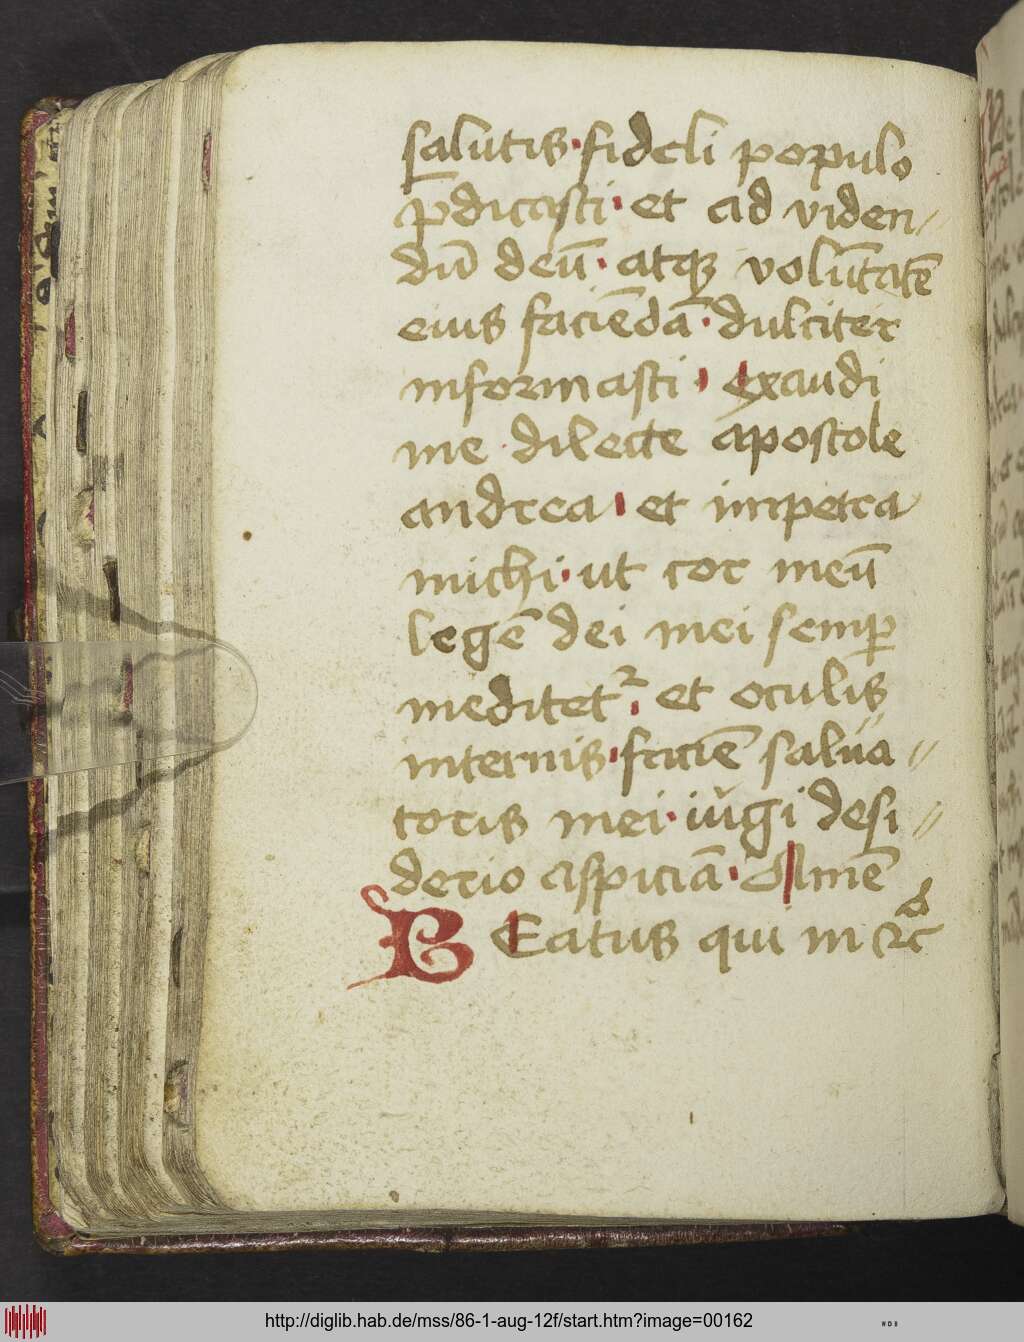 salutis · fideli populo
p̄dicasti · et ad viden //
dū deū · atqꝫ volūtatē
eius faciēdā · dulciter
informasti · exaudi
me · dilecte apostole
andrea · et impetra
michi · ut cor meū
legē dei mei semꝑ
meditet᷑ · et oculis
internis · faciē salua //
toris mei · iŭgi desi //
derio aspiciā · Amē
BEatus qui in
http://diglib.hab.de/mss/86-1-aug-12f/start.htm?image=00162